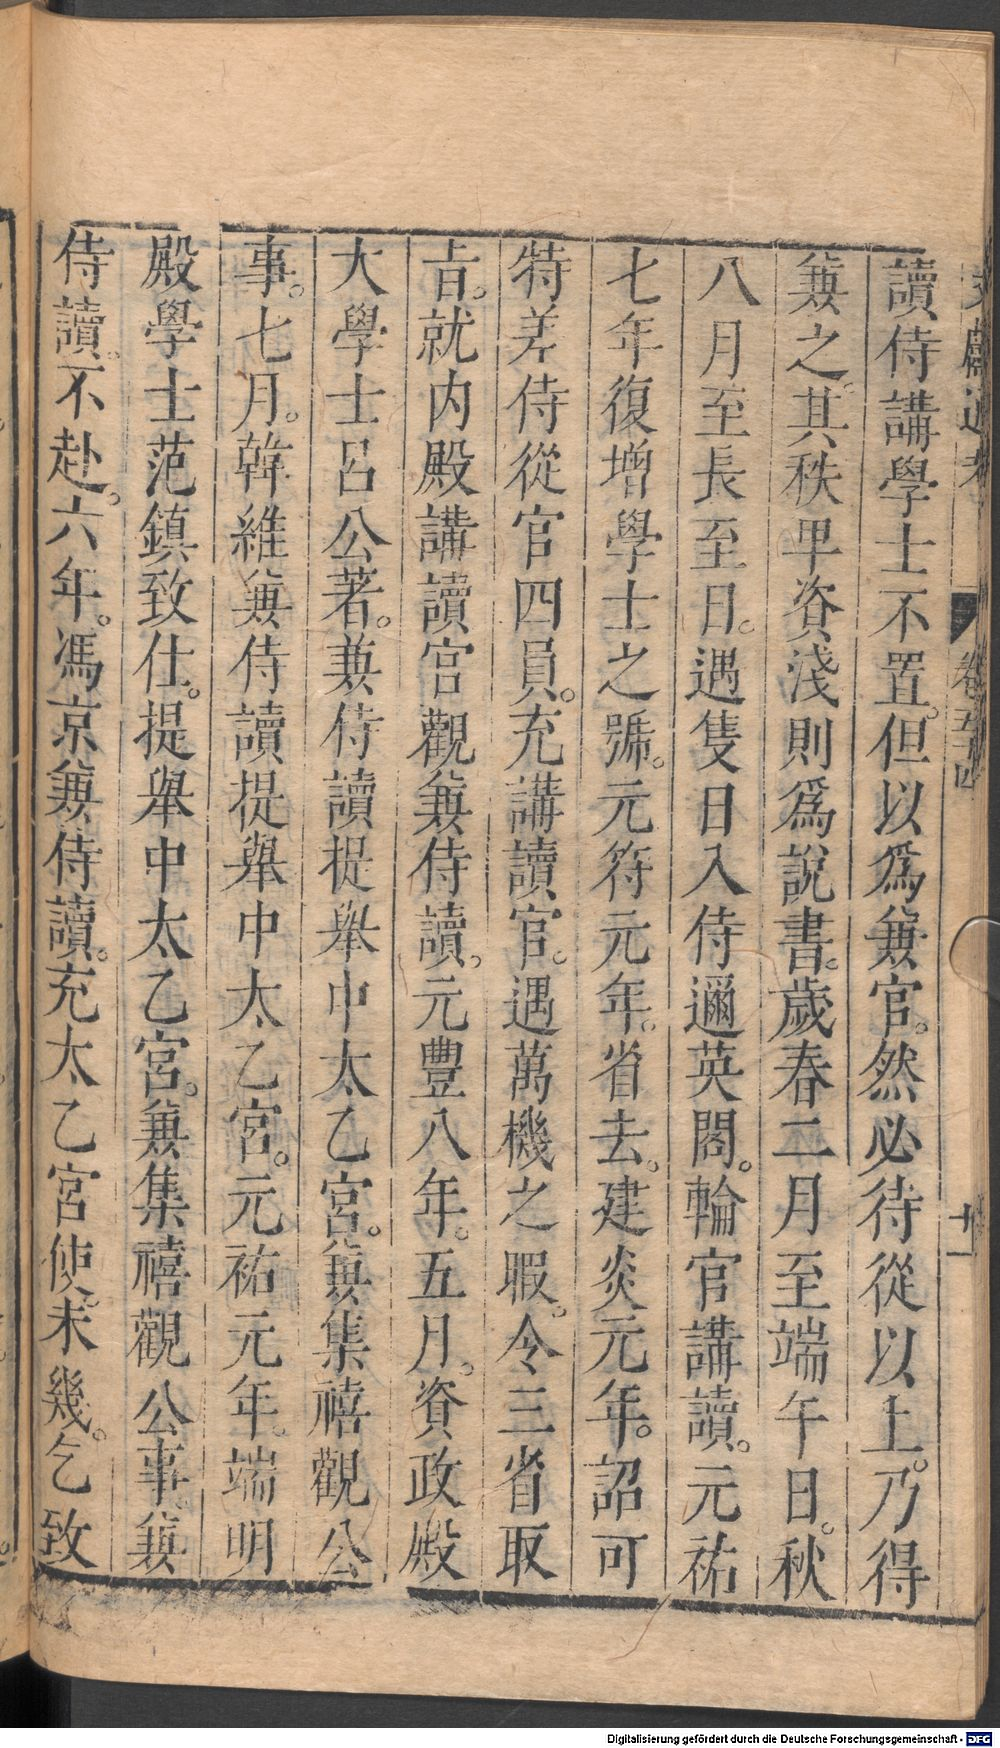 讀侍講學士不置。但以爲兼官。然必待從以上。乃得
兼之。其秩卑資淺則爲說書。歲春二月至端午日。秋
八月至長至日。遇隻日入侍邇英閣。輪官講讀。元祐
七年復增學士之號。元符元年。省去。建炎元年。詔可
特差侍從官四員。充講讀官。遇萬機之暇。令三省取
旨。就内殿講讀宮觀兼侍讀。元豐八年。五月。資政殿
大學士呂公著。兼侍讀提舉中太乙宮。兼集禧觀公
事。七月。韓維兼侍讀提舉中太乙宮。元祐元年。端明
殿學士范鎮致仕。提舉中太乙宮。兼集禧觀公事。兼
侍讀。不赴。六年。馮京兼侍讀。充太乙宮使。未幾。乞致
文獻通考 卷五十四 十一
Digitalisierung gefördert durch die Deutsche Forschungsgemeinschaft - DFG